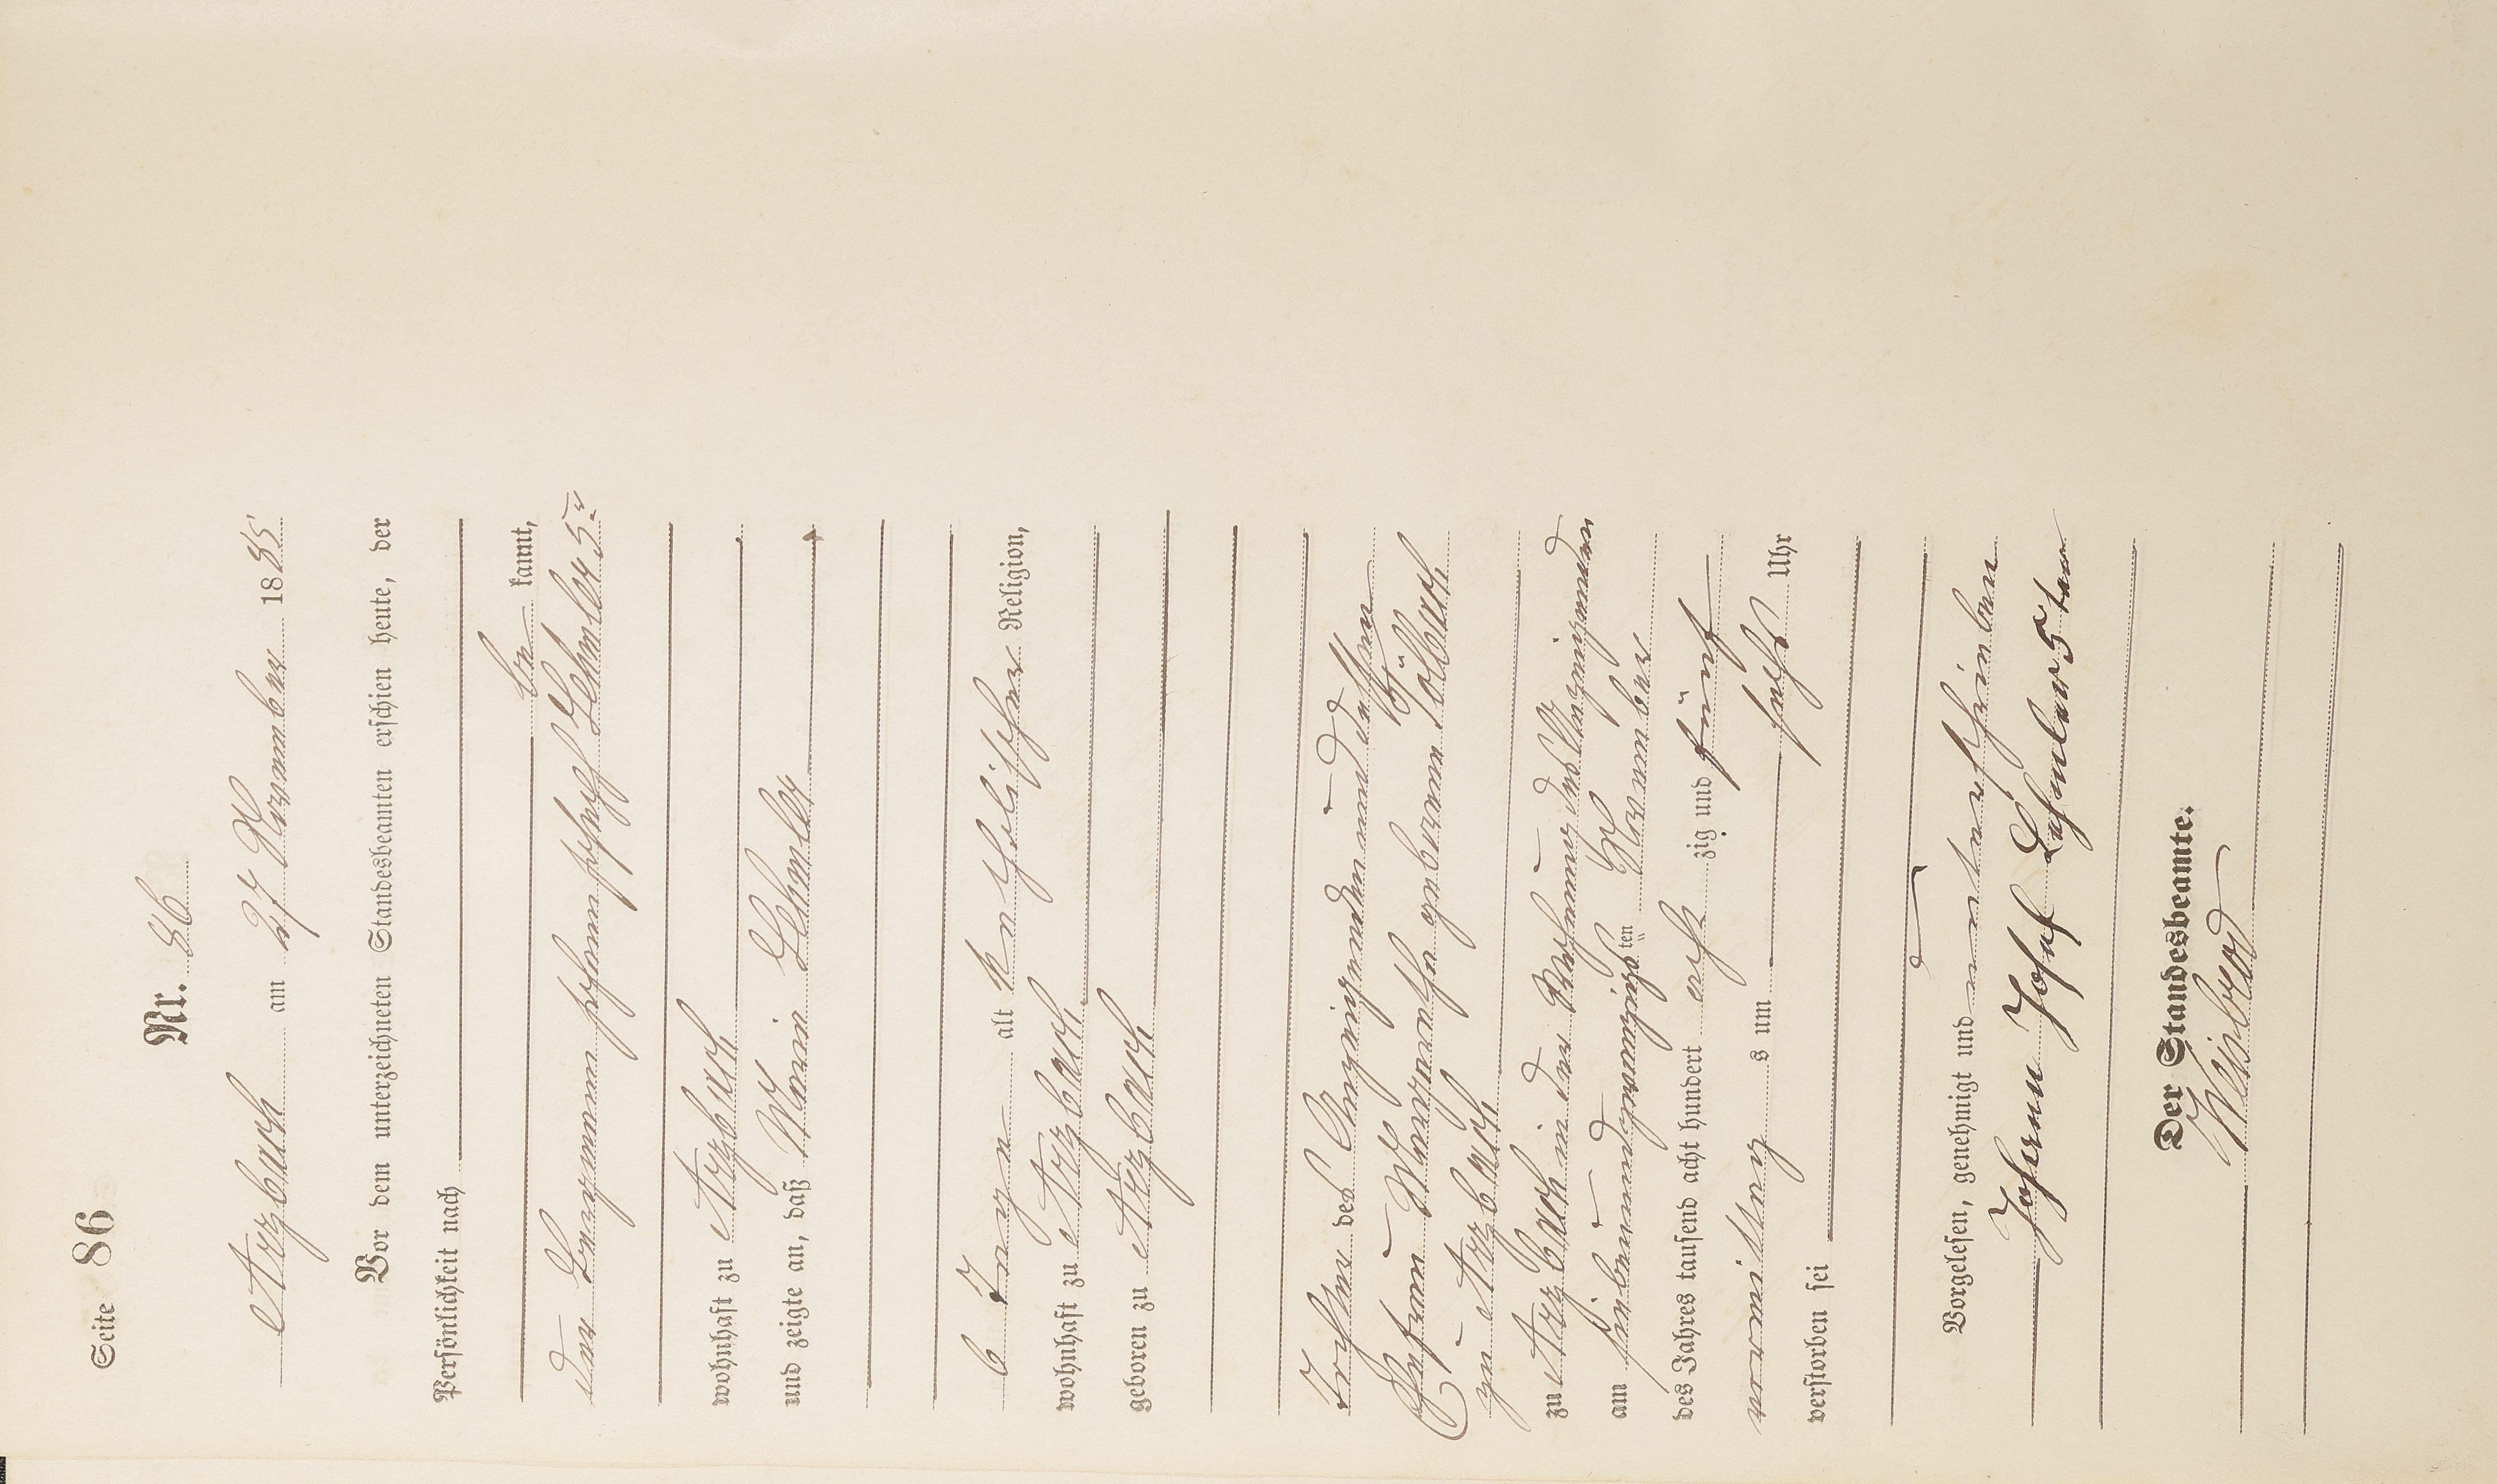 Seite 86
Nr. 86
Arzbach am 27 November 1885
Vor dem unterzeichneten Standesbeamten erschien heute, der
Persönlichkeit nach
be kannt,
der Bergmann Johann Joseph Lehmler 5r
wohnhaft zu Arzbach
und zeigte an, daß Maria Lehmler
6 Tage alt katholischer Religion,
wohnhaft zu Arzbach
geboren zu Arzbach
Tochter des Anzeigenden und dessen
Ehefrau Margaretha geborene
zu Arzbach
zu Arzbach in der Wohnung des Anzeigenden
am siebenundzwanzigsten ten November
des Jahres tausend acht hundert acht zig und fünf
vormittag s um sechs Uhr
verstorben sei
Vorgelesen, genehmigt und unterschrieben
Johann Josef Lehmler 5 ter
Der Standesbeamte.